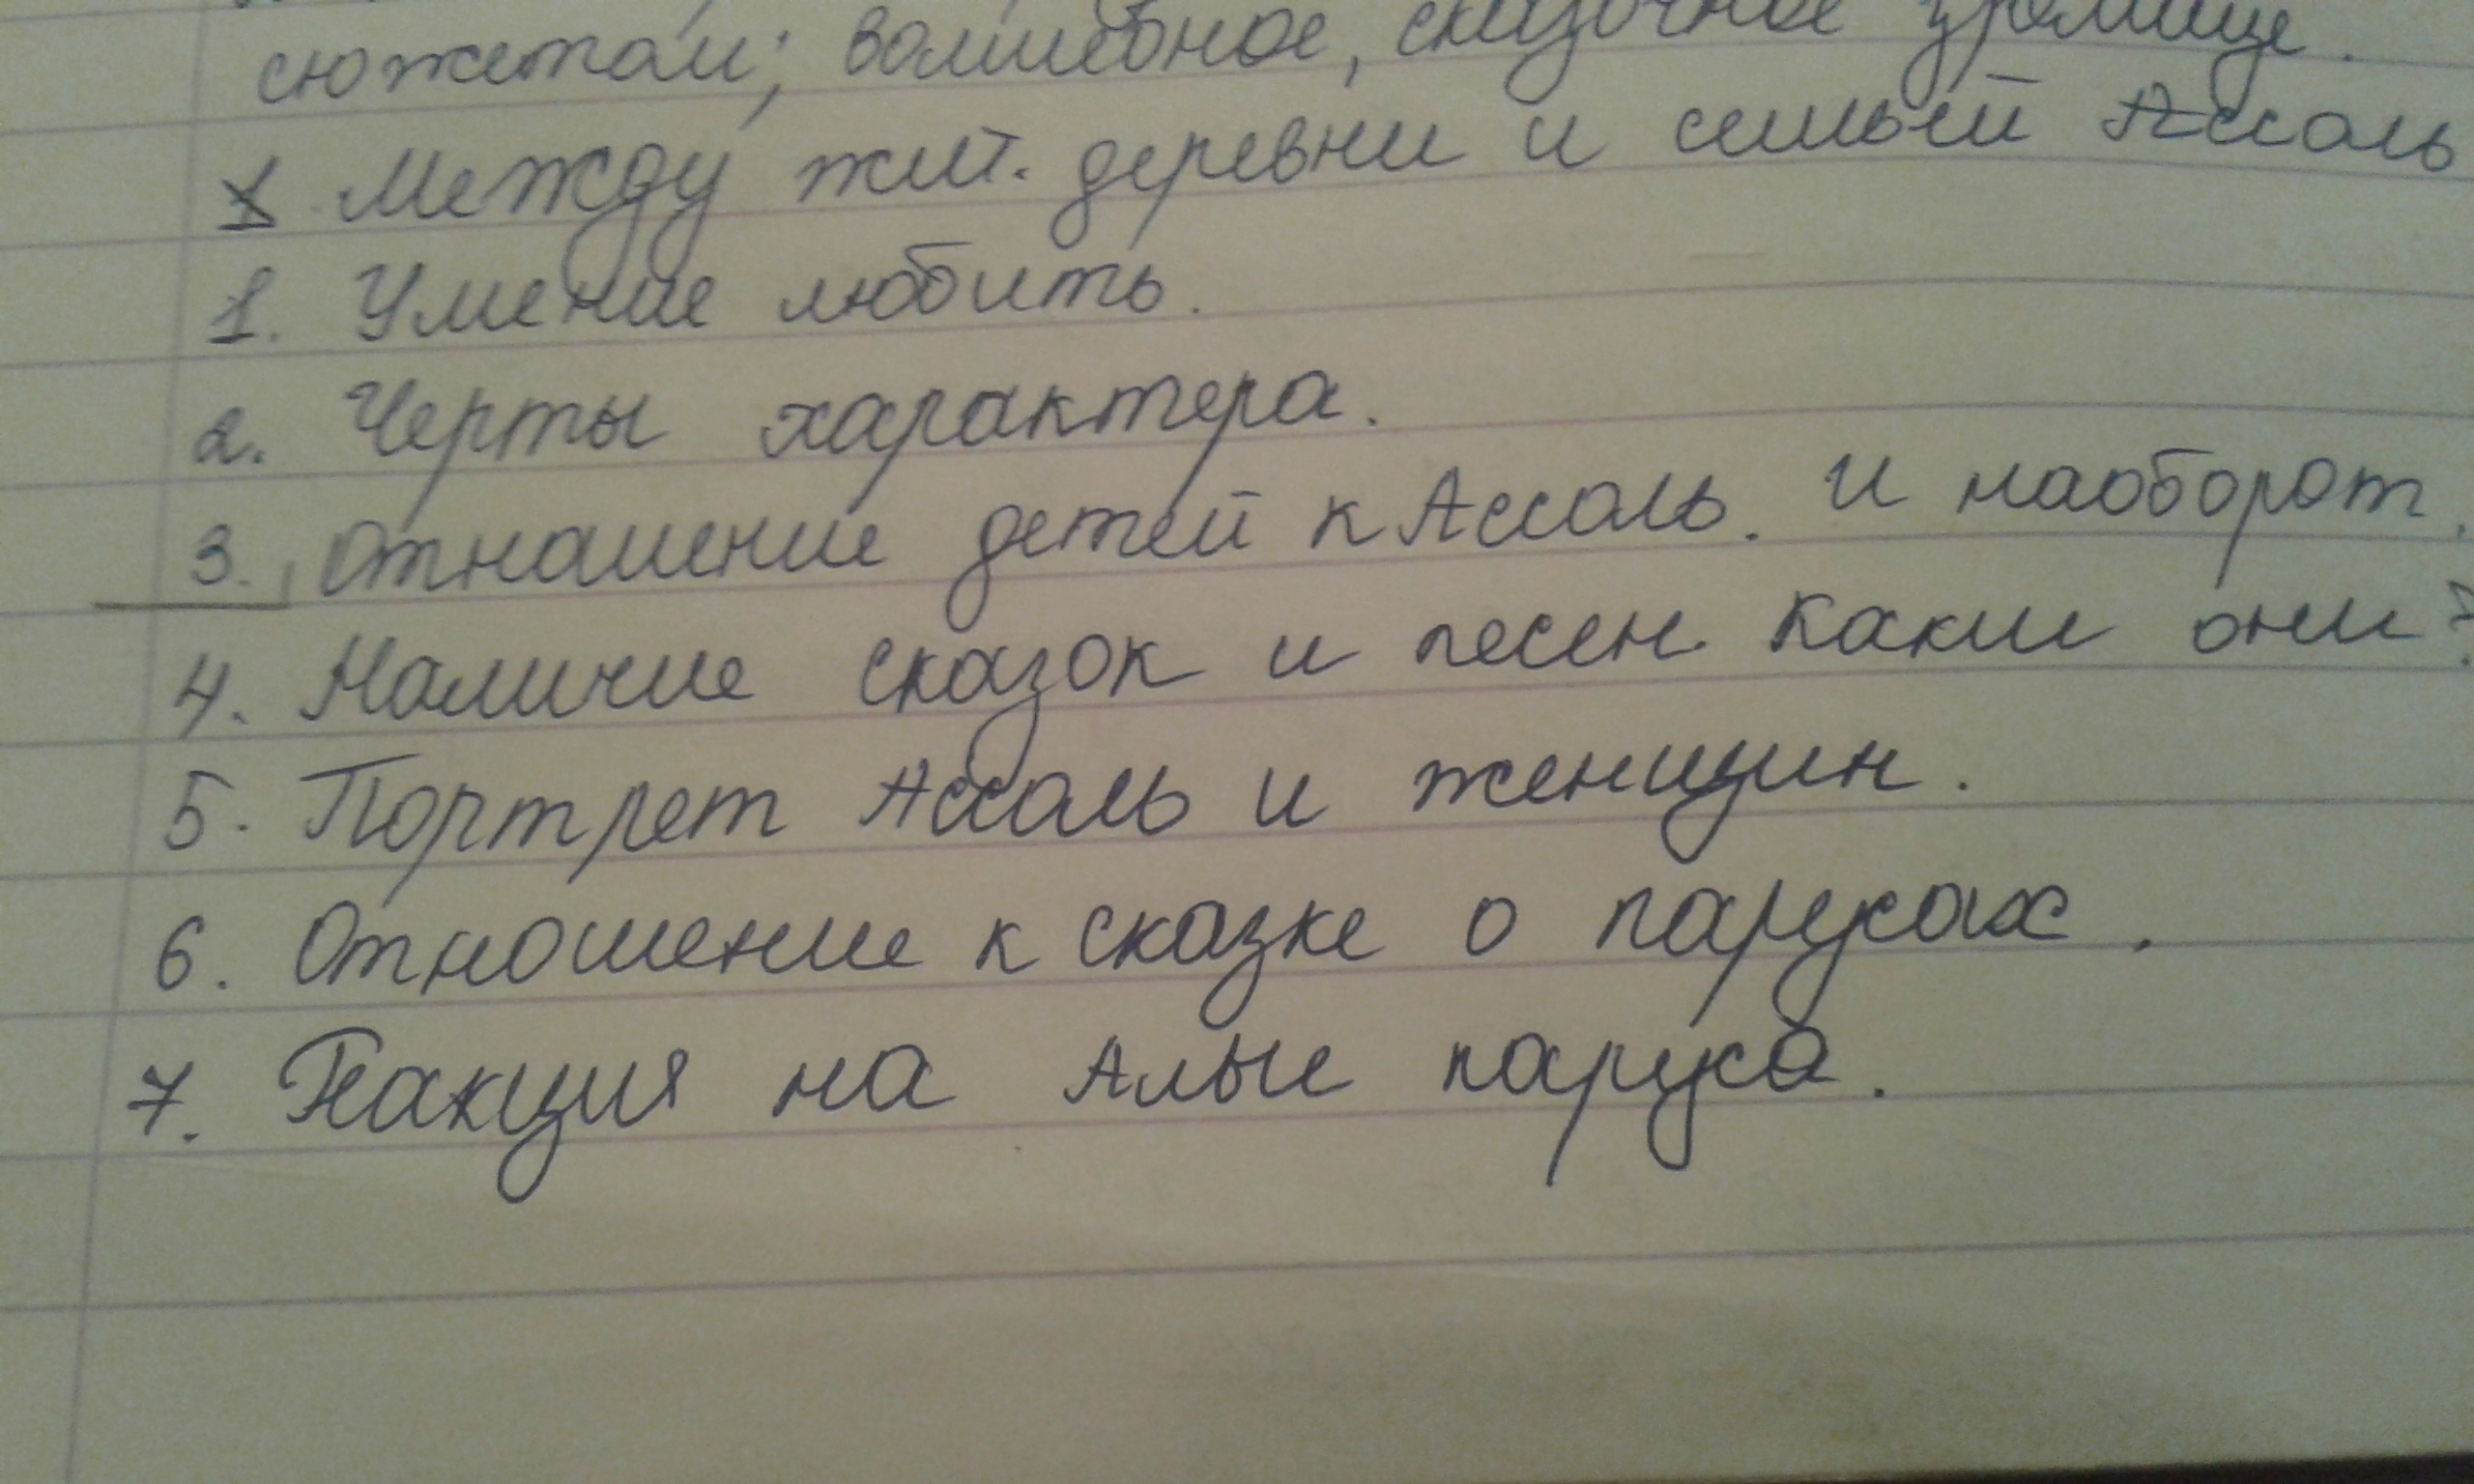 сюжетом; волшебное, сказочное зрелище.
Между жит. деревни и семьей Ассоль
1. Умение любить.
2. Черты характера.
3. Отношение детей к Ассоль. И наоборот.
4. Наличие сказок и песен. Какие они?
5. Портрет Ассоль и женщин.
6. Отношение к сказке о парусах.
7. Реакция на Алые паруса.